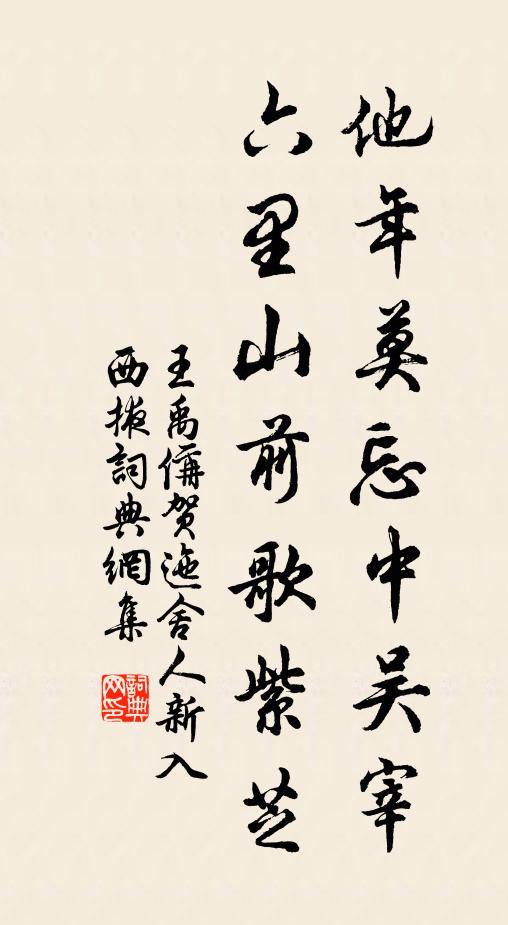 他年莫忘中吴宰
六里山前歌紫芝
王禹偁贺迤舍人新入
西掖詞典網集
詞典网印